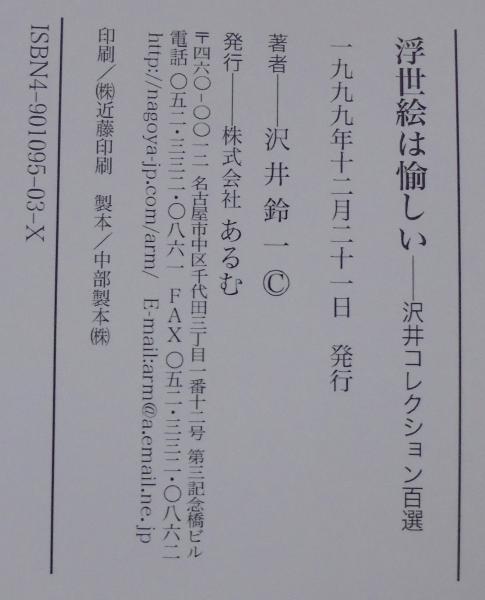 浮世絵は愉しい──沢井コレクション百選
一九九九年十二月二十一日　発行
著者──沢井鈴一©
発行──株式会社 あるむ
〒四六〇-〇〇一二 名古屋市中区千代田三丁目一番十二号 第三記念橋ビル
電話 〇五二・三三二・〇八六一 FAX 〇五二・三三二・〇八六二
http://nagoya-jp.com/arm/ E-mail:arm@a.email.ne.jp
印刷／㈱近藤印刷　製本／中部製本㈱
ISBN4-901095-03-X